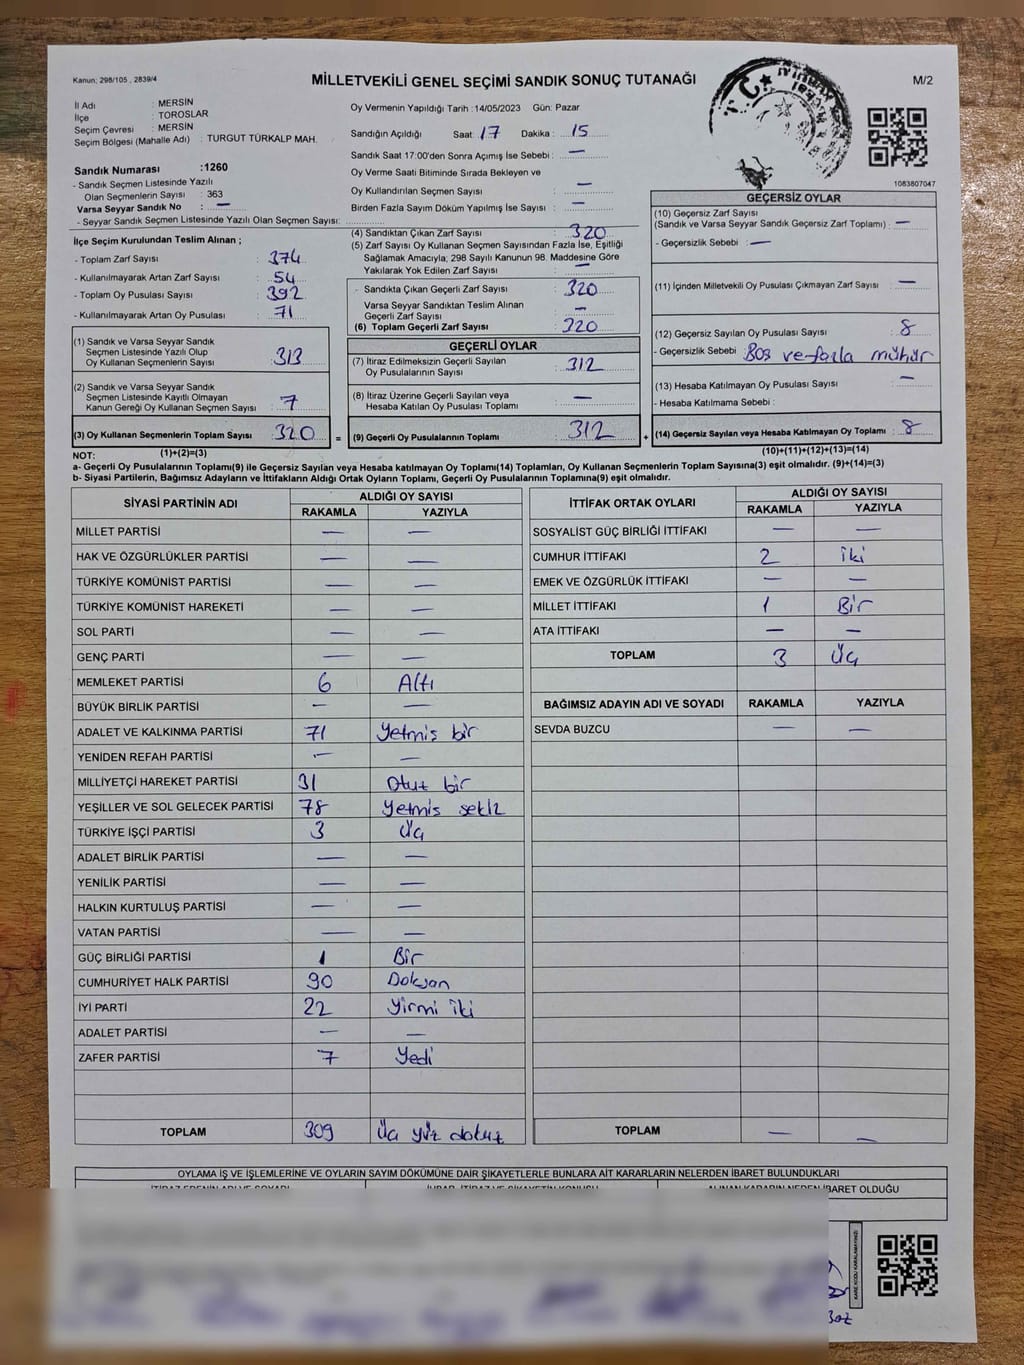 Kanun; 298/105 , 2839/4
MİLLETVEKİLİ GENEL SEÇİMİ SANDIK SONUÇ TUTANAĞI
M/2
İl Adı : MERSİN
İlçe : TOROSLAR
Seçim Çevresi : MERSİN
Seçim Bölgesi (Mahalle Adı) : TURGUT TÜRKALP MAH.
Oy Vermenin Yapıldığı Tarih :14/05/2023 Gün: Pazar
Sandığın Açıldığı Saat : 17 Dakika : 15
Sandık Saat 17:00'den Sonra Açımış İse Sebebi : —
Oy Verme Saati Bitiminde Sırada Bekleyen ve
Oy Kullandırılan Seçmen Sayısı : —
Birden Fazla Sayım Döküm Yapılmış İse Sayısı : —
T.C.
1083807047
Sandık Numarası :1260
- Sandık Seçmen Listesinde Yazılı
Olan Seçmenlerin Sayısı : 363
Varsa Seyyar Sandık No : —
- Seyyar Sandık Seçmen Listesinde Yazılı Olan Seçmen Sayısı:
İlçe Seçim Kurulundan Teslim Alınan ;
- Toplam Zarf Sayısı : 374
- Kullanılmayarak Artan Zarf Sayısı : 54
- Toplam Oy Pusulası Sayısı : 392
- Kullanılmayarak Artan Oy Pusulası : 71
(1) Sandık ve Varsa Seyyar Sandık
Seçmen Listesinde Yazılı Olup
Oy Kullanan Seçmenlerin Sayısı : 313
(2) Sandık ve Varsa Seyyar Sandık
Seçmen Listesinde Kayıtlı Olmayan
Kanun Gereği Oy Kullanan Seçmen Sayısı : 7
(3) Oy Kullanan Seçmenlerin Toplam Sayısı : 320 =
(1)+(2)=(3)
(4) Sandıktan Çıkan Zarf Sayısı : 320
(5) Zarf Sayısı Oy Kullanan Seçmen Sayısından Fazla İse, Eşitliği
Sağlamak Amacıyla; 298 Sayılı Kanunun 98. Maddesine Göre
Yakılarak Yok Edilen Zarf Sayısı : —
Sandıkta Çıkan Geçerli Zarf Sayısı : 320
Varsa Seyyar Sandıktan Teslim Alınan
Geçerli Zarf Sayısı : —
(6) Toplam Geçerli Zarf Sayısı : 320
GEÇERLİ OYLAR
(7) İtiraz Edilmeksizin Geçerli Sayılan
Oy Pusulalarının Sayısı : 312
(8) İtiraz Üzerine Geçerli Sayılan veya
Hesaba Katılan Oy Pusulası Toplamı : —
(9) Geçerli Oy Pusulalarının Toplamı : 312 +
GEÇERSİZ OYLAR
(10) Geçersiz Zarf Sayısı
(Sandık ve Varsa Seyyar Sandık Geçersiz Zarf Toplamı) : —
- Geçersizlik Sebebi : —
(11) İçinden Milletvekili Oy Pusulası Çıkmayan Zarf Sayısı : —
(12) Geçersiz Sayılan Oy Pusulası Sayısı : 8
- Geçersizlik Sebebi : Boş ve fazla mühür
(13) Hesaba Katılmayan Oy Pusulası Sayısı : —
- Hesaba Katılmama Sebebi :
(14) Geçersiz Sayılan veya Hesaba Katılmayan Oy Toplamı : 8
(10)+(11)+(12)+(13)=(14)
NOT:
a- Geçerli Oy Pusulalarının Toplamı(9) ile Geçersiz Sayılan veya Hesaba katılmayan Oy Toplamı(14) Toplamları, Oy Kullanan Seçmenlerin Toplam Sayısına(3) eşit olmalıdır. (9)+(14)=(3)
b- Siyasi Partilerin, Bağımsız Adayların ve İttifakların Aldığı Ortak Oyların Toplamı, Geçerli Oy Pusulalarının Toplamına(9) eşit olmalıdır.
SİYASİ PARTİNİN ADI ALDIĞI OY SAYISI
RAKAMLA YAZIYLA
MİLLET PARTİSİ — —
HAK VE ÖZGÜRLÜKLER PARTİSİ — —
TÜRKİYE KOMÜNİST PARTİSİ — —
TÜRKİYE KOMÜNİST HAREKETİ — —
SOL PARTİ — —
GENÇ PARTİ — —
MEMLEKET PARTİSİ 6 Altı
BÜYÜK BİRLİK PARTİSİ — —
ADALET VE KALKINMA PARTİSİ 71 Yetmiş bir
YENİDEN REFAH PARTİSİ — —
MİLLİYETÇİ HAREKET PARTİSİ 31 Otuz bir
YEŞİLLER VE SOL GELECEK PARTİSİ 78 Yetmiş sekiz
TÜRKİYE İŞÇİ PARTİSİ 3 Üç
ADALET BİRLİK PARTİSİ — —
YENİLİK PARTİSİ — —
HALKIN KURTULUŞ PARTİSİ — —
VATAN PARTİSİ — —
GÜÇ BİRLİĞİ PARTİSİ 1 Bir
CUMHURİYET HALK PARTİSİ 90 Doksan
İYİ PARTİ 22 Yirmi iki
ADALET PARTİSİ — —
ZAFER PARTİSİ 7 Yedi
TOPLAM 309 Üç yüz dokuz
İTTİFAK ORTAK OYLARI ALDIĞI OY SAYISI
RAKAMLA YAZIYLA
SOSYALİST GÜÇ BİRLİĞİ İTTİFAKI — —
CUMHUR İTTİFAKI 2 iki
EMEK VE ÖZGÜRLÜK İTTİFAKI — —
MİLLET İTTİFAKI 1 Bir
ATA İTTİFAKI — —
TOPLAM 3 Üç
BAĞIMSIZ ADAYIN ADI VE SOYADI RAKAMLA YAZIYLA
SEVDA BUZCU — —
TOPLAM — —
OYLAMA İŞ VE İŞLEMLERİNE VE OYLARIN SAYIM DÖKÜMÜNE DAİR ŞİKAYETLERLE BUNLARA AİT KARARLARIN NELERDEN İBARET BULUNDUKLARI
İTİRAZ EDENİN ADI VE SOYADI İHBAR, İTİRAZ VE ŞİKAYETİN KONUSU ALINAN KARARIN NEDEN İBARET OLDUĞU
KARE KODU KARALAMAYINIZ!